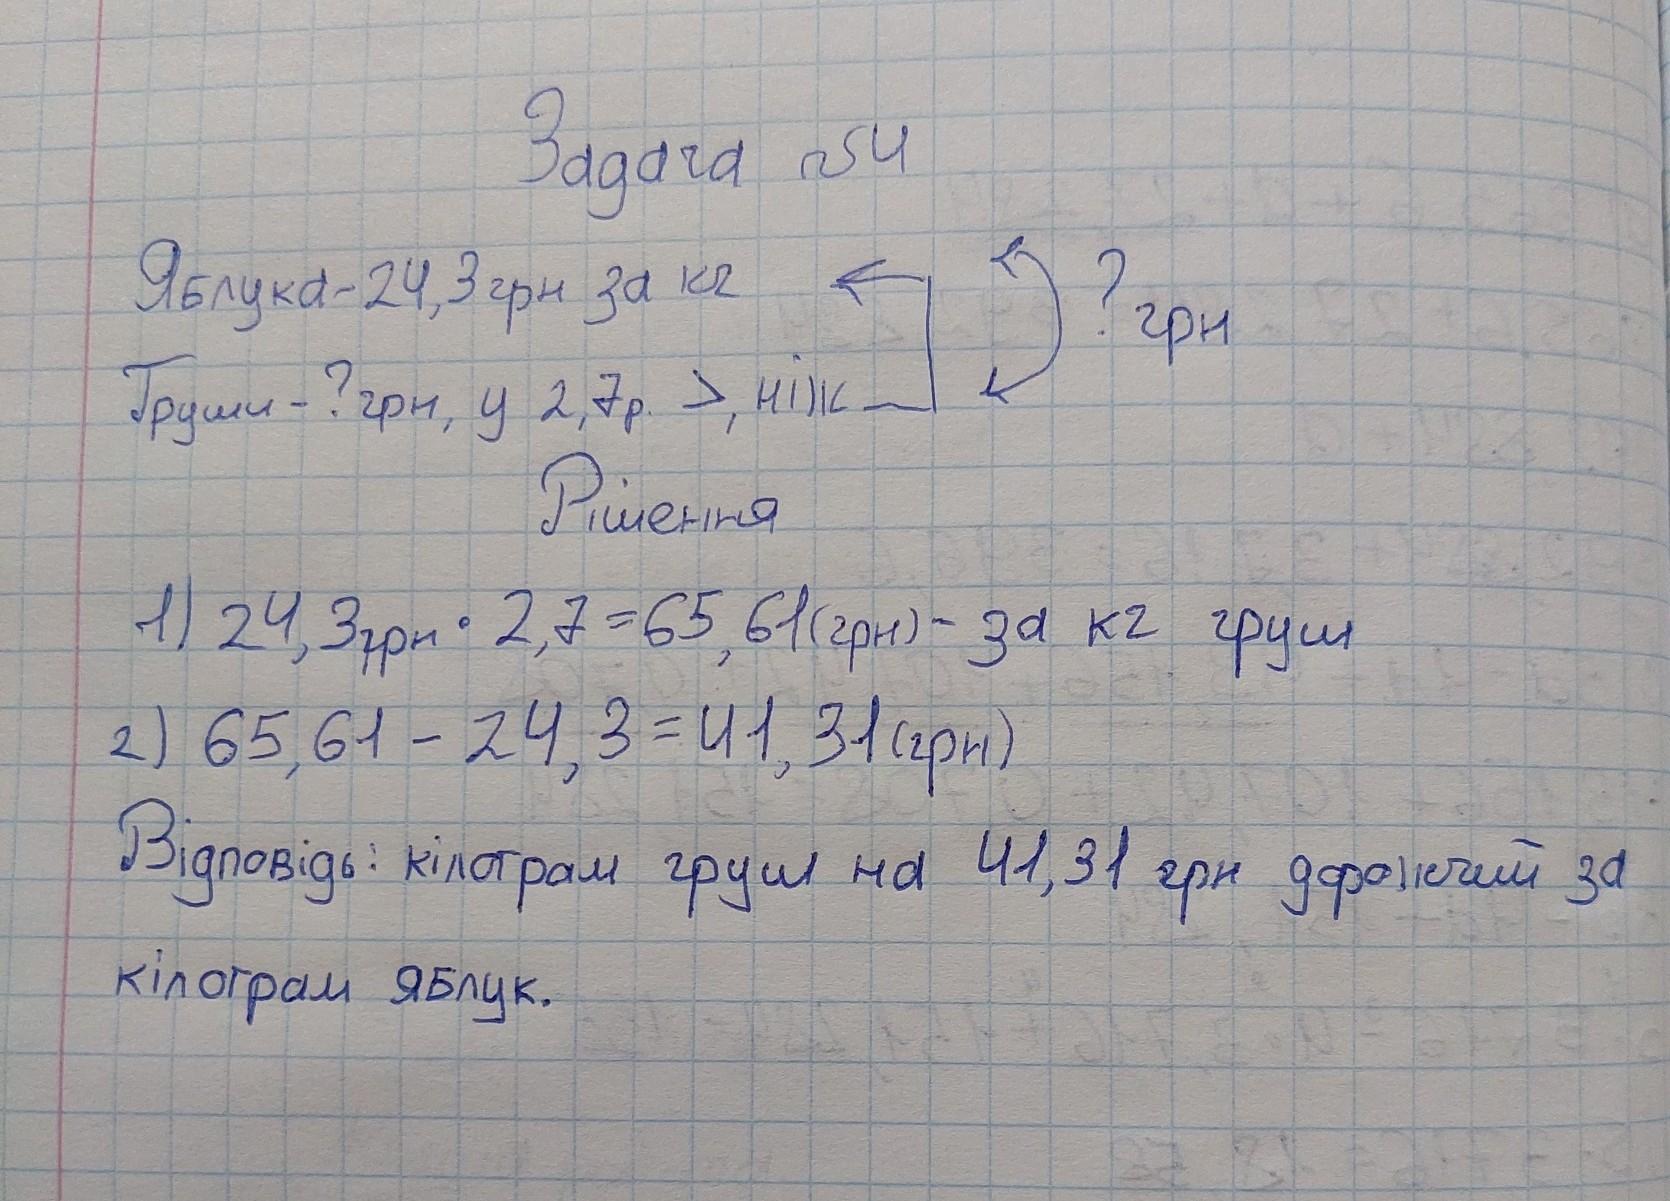 Задача №4
Яблука - 24,3 грн за кг ? грн
Груши - ? грн, у 2,7 р. >, ніж
Рішення
1) 24,3 грн · 2,7 = 65,61 (грн) - за кг груш
2) 65,61 - 24,3 = 41,31 (грн)
Відповідь: кілограм груш на 41,31 грн за
кілограм яблук.